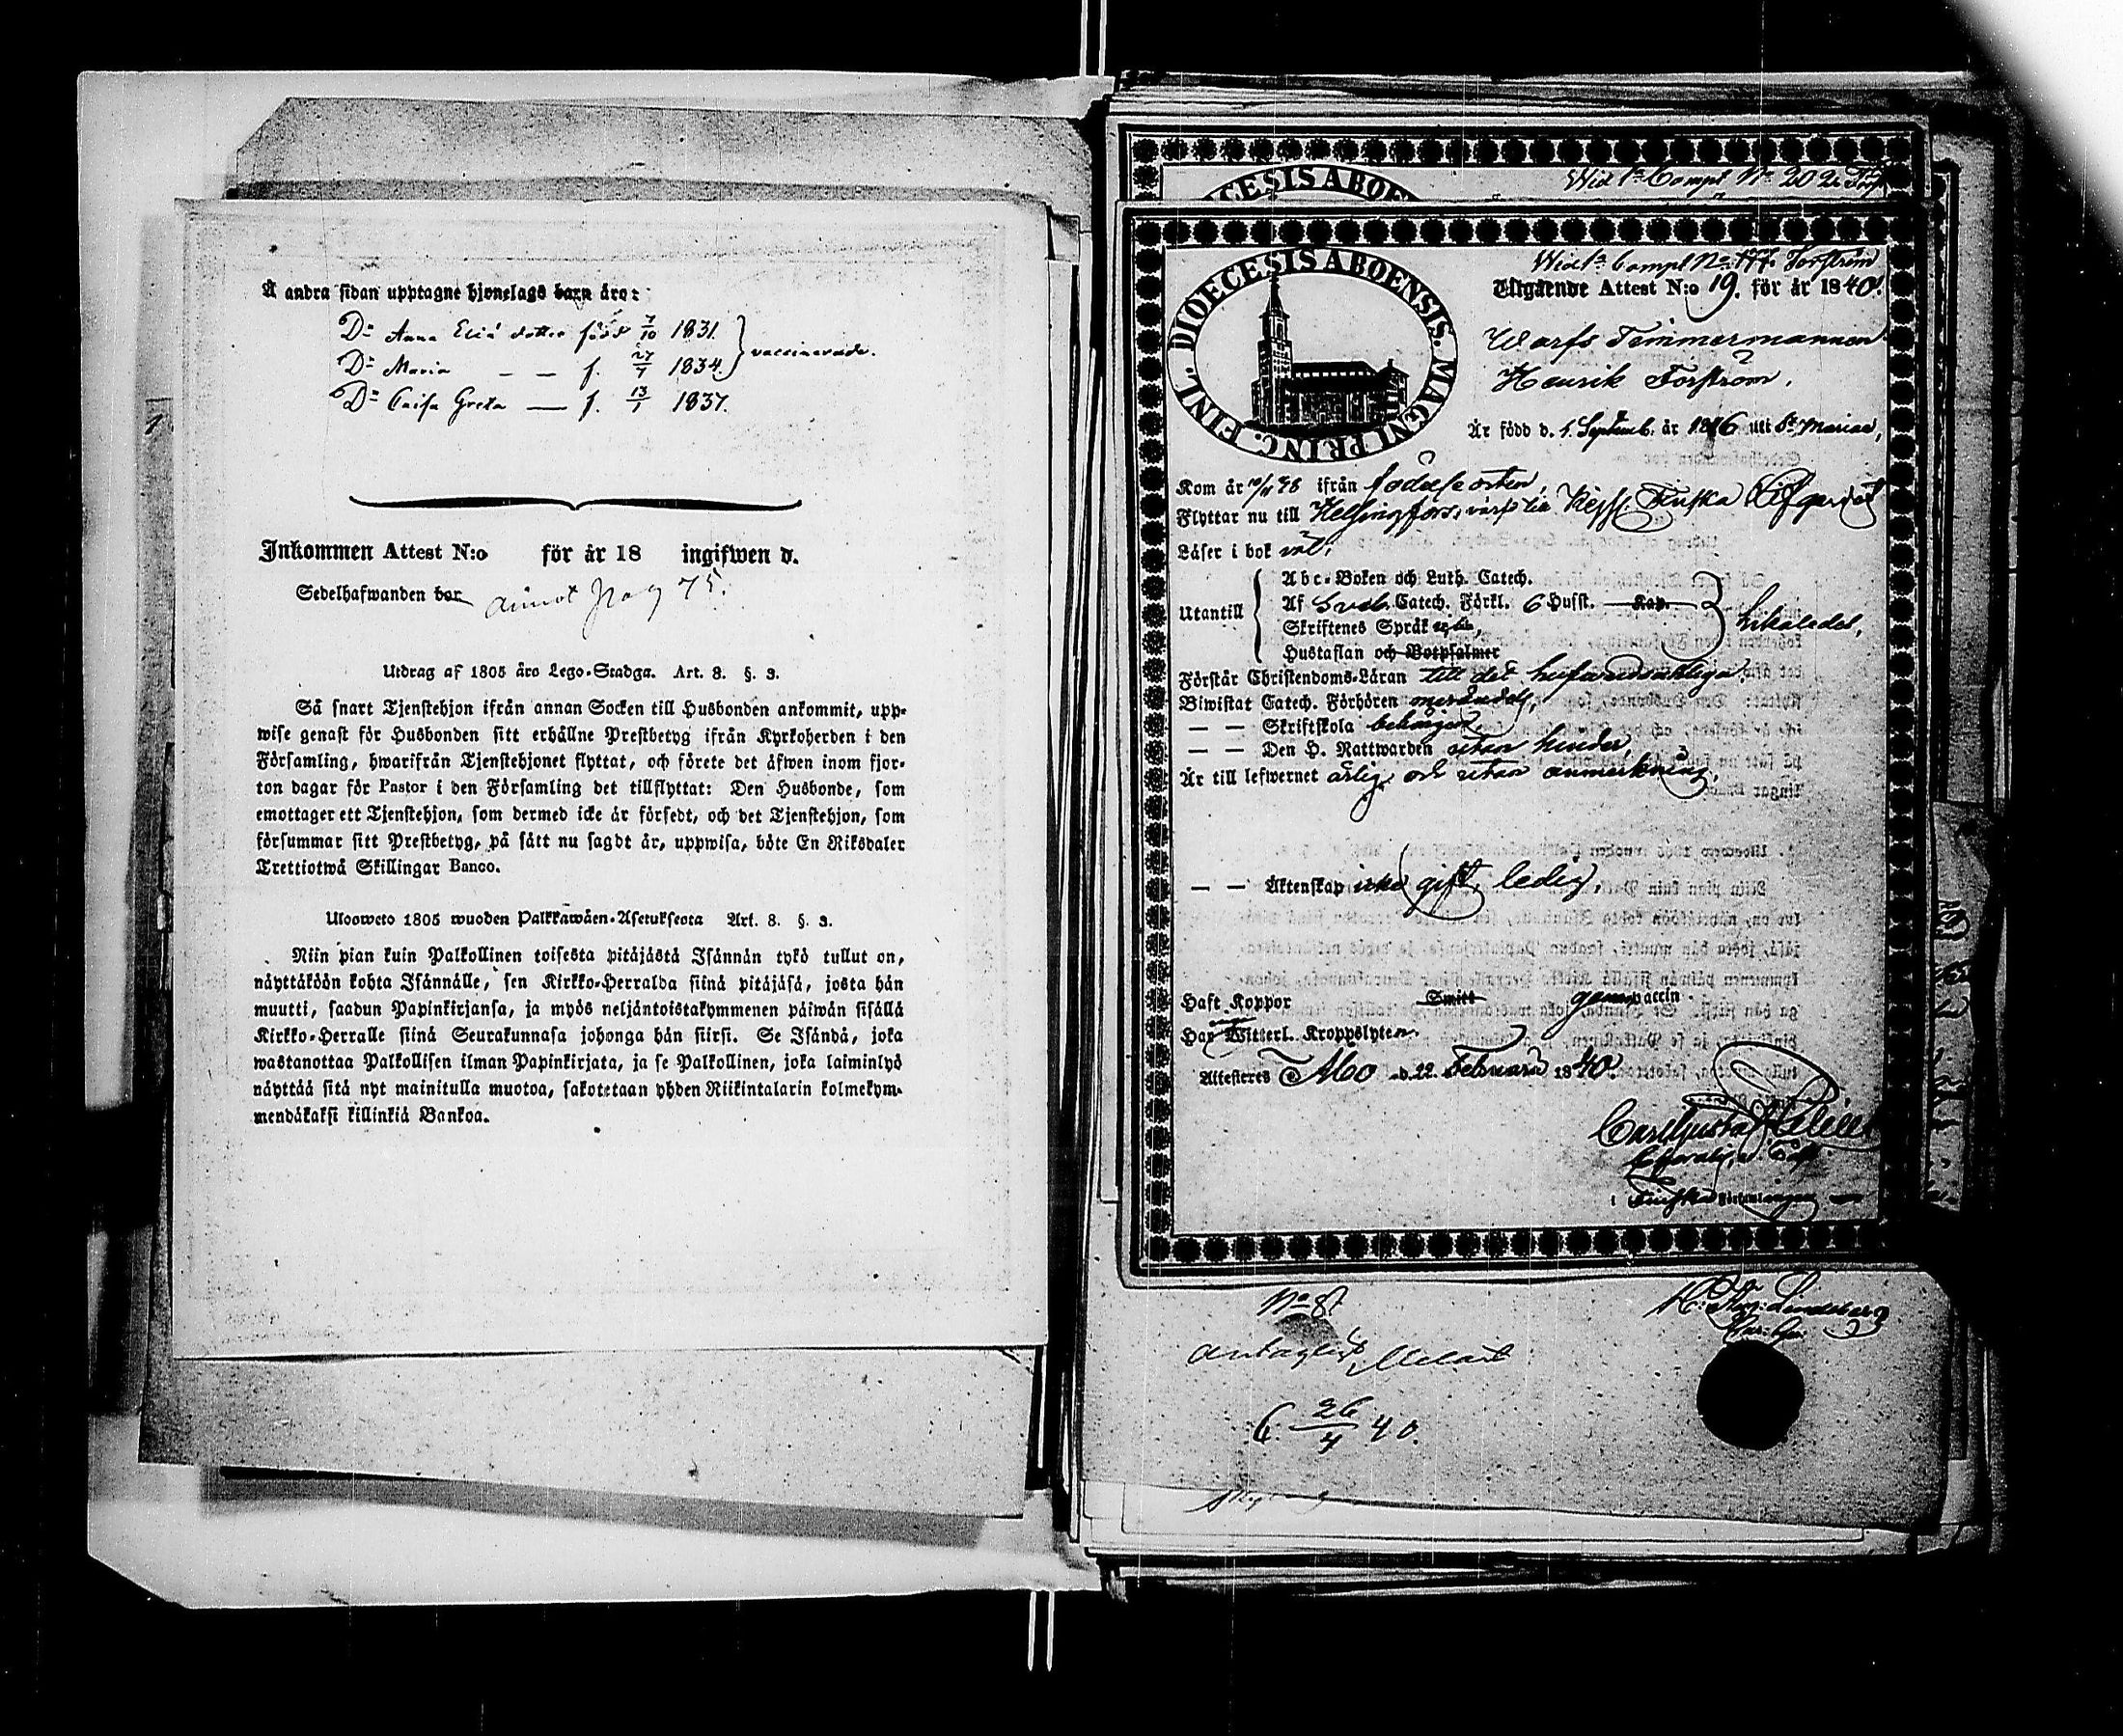 Å andra sidan upptagne hjonelags barn äro:
D:r Anna Elis dotter född 7/10 1831.
D:r Maria — — f. 27/7 1834.
vaccinerade.
D:r Caisa Greta — f. 13/1 1837.
Inkommen Attest N:o för år 18 ingifwen d.
Sedelhafwanden bor annot pag 75.
Utdrag af 1805 års Lego-Stadga. Art. 8. §. 3.
Så snart Tjenstehjon ifrån annan Socken till Husbonden ankommit, upp-
wise genast för Husbonden sitt erhållne Prestbetyg ifrån Kyrkoherden i den
Församling, hwarifrån Tjenstehjonet flyttat, och förete det äfwen inom fjor-
ton dagar för Pastor i den Församling det tillflyttat: Den Husbonde, som
emottager ett Tjenstehjon, som dermed icke är försedt, och det Tjenstehjon, som
försummar sitt Prestbetyg, på sätt nu sagdt är, uppwisa, böte En Riksdaler
Trettiotwå Skillingar Banco.
Ulosweto 1805 wuoden Palkkawäen-Asetuksesta Art. 8. §. 3.
Niin pian kuin Palkollinen toisesta pitäjästä Isännän tykö tullut on,
näyttäköön kohta Isännälle, sen Kirkko-Herralda siinä pitäjäsä, josta hän
muutti, saadun Papinkirjansa, ja myös neljäntoistakymmenen päiwän sisällä
Kirkko-Herralle siinä Seurakunnasa johonga hän siirsi. Se Isändä, joka
wastanottaa Palkollisen ilman Papinkirjata, ja se Palkollinen, joka laiminlyö
näyttää sitä nyt mainitulla muotoa, sakotetaan yhden Riikintalarin kolmekym-
mendäkaksi killinkiä Bankoa.
DIOECESIS ABOEN
Wid 1:a Comp. N:o 202
DIOECESIS ABOENSIS. MAGNI PRINC. FINL.
Wid 1:a Comp. N:o 177. Forström
Utgående Attest N:o 19. för år 1840.
Warfs Timmermannen
Henrik Forström,
Är född d. 1. Septemb. år 1816 uti S:t Mariae,
Kom år 10/11 38 ifrån födelseorten,
Flyttar nu till Helsingfors,
Läser i bok väl,
Utantill
Abc-Boken och Luth. Catech.
Af Sveb. Catech. Förkl. 6 Hufst. Kap.
Skriftenes Språk
Hustaflan och Botpsalmer
Förstår Christendoms-Läran till det hufwudsakliga,
Biwistat Catech. Förhören
— — Skriftskola behörigen,
— — Den H. Nattwarden utan hinder,
Är till lefwernet ärlig och utan anmärkning,
— — Äktenskap icke gift, ledig,
Haft Koppor Smitt genom vaccin.
Har Witterl. Kroppslyten.
Attesteras Åbo d. 22. Februari 1840.
i Finska församlingen
N:o 81
6. 26/4 40.